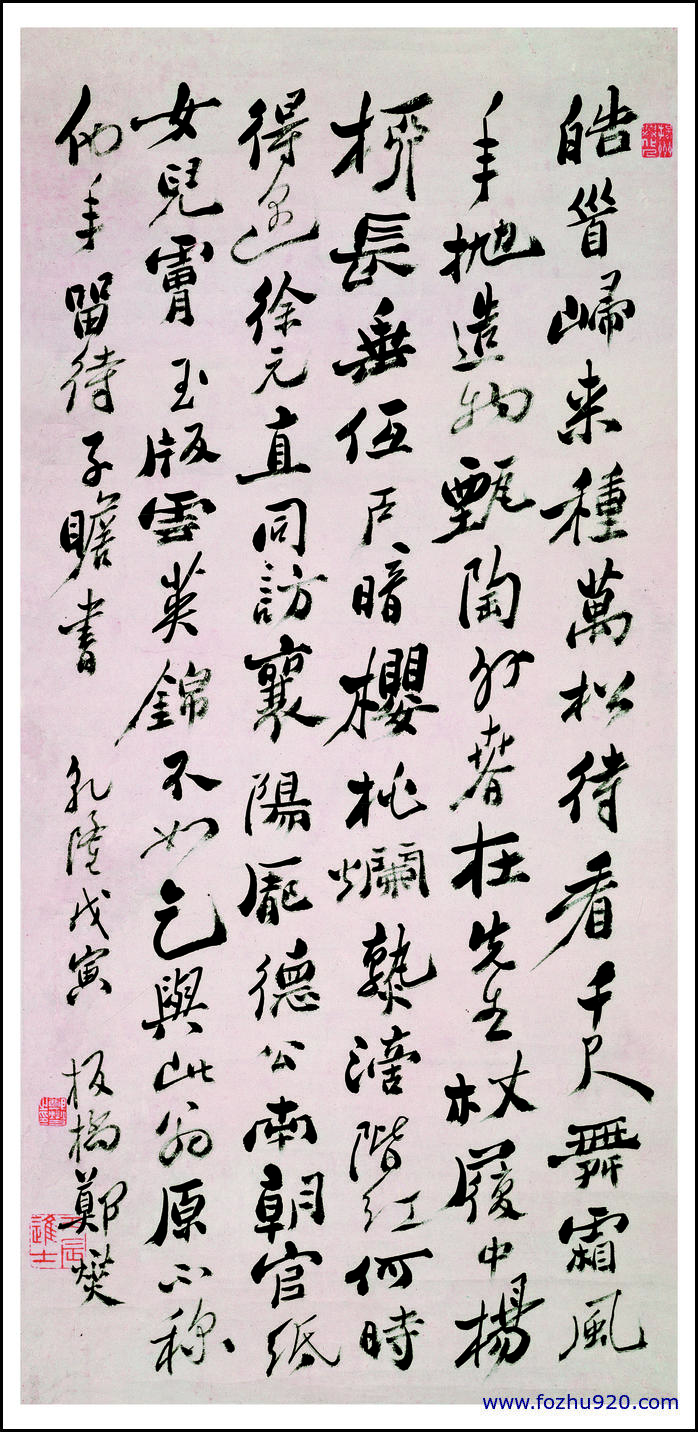 皓首歸来種萬松待看千尺舞霜風
年抛造物甄陶外春在先生杖履中楊
柳長垂低戶暗櫻桃爛熟滴階紅何時
得徐元直同訪襄陽龐德公南朝官紙
女兒膚玉版雲英錦不如乞與此翁原不称
他年留待子瞻書 乾隆戊寅 板橋鄭燮
www.fozhu920.com